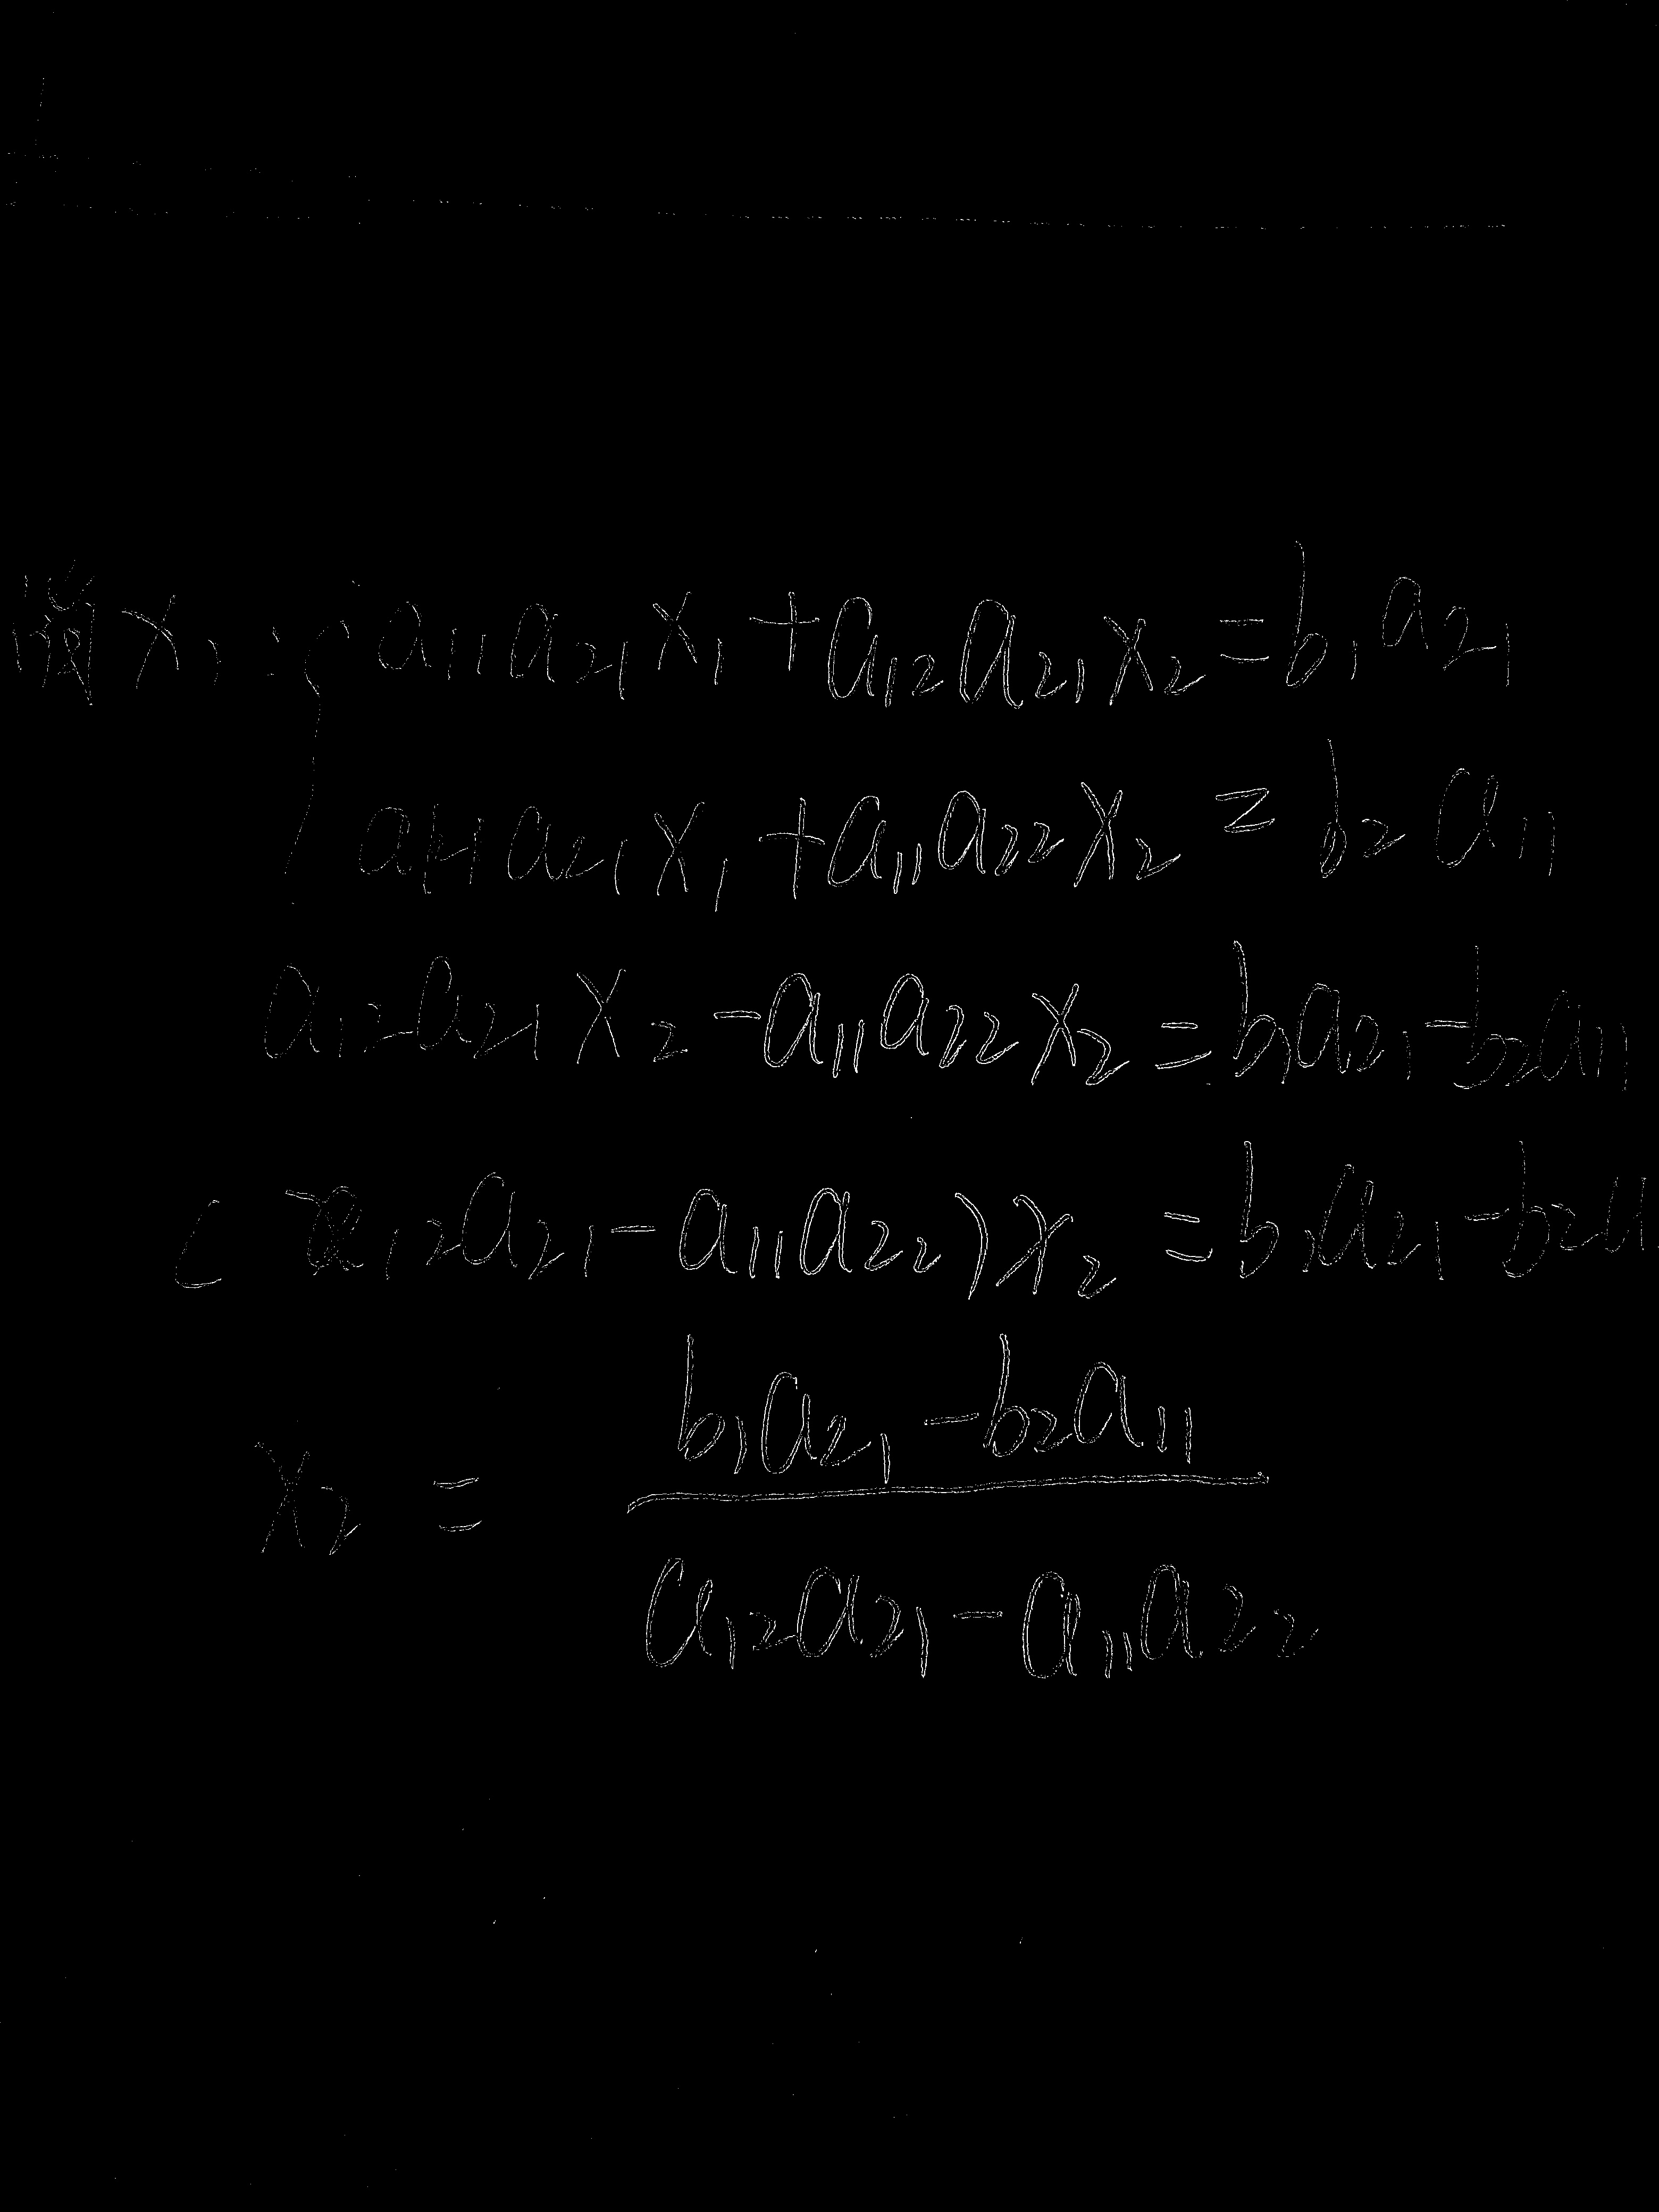 x₂: { a₁₁a₂₁x₁ + a₁₂a₂₁x₂ = b₁a₂₁
a₁₁a₂₁x₁ + a₁₁a₂₂x₂ = b₂a₁₁
a₁₂a₂₁x₂ - a₁₁a₂₂x₂ = b₁a₂₁ - b₂a₁₁
(a₁₂a₂₁ - a₁₁a₂₂)x₂ = b₁a₂₁ - b₂a₁
x₂ = (b₁a₂₁ - b₂a₁₁) / (a₁₂a₂₁ - a₁₁a₂₂)